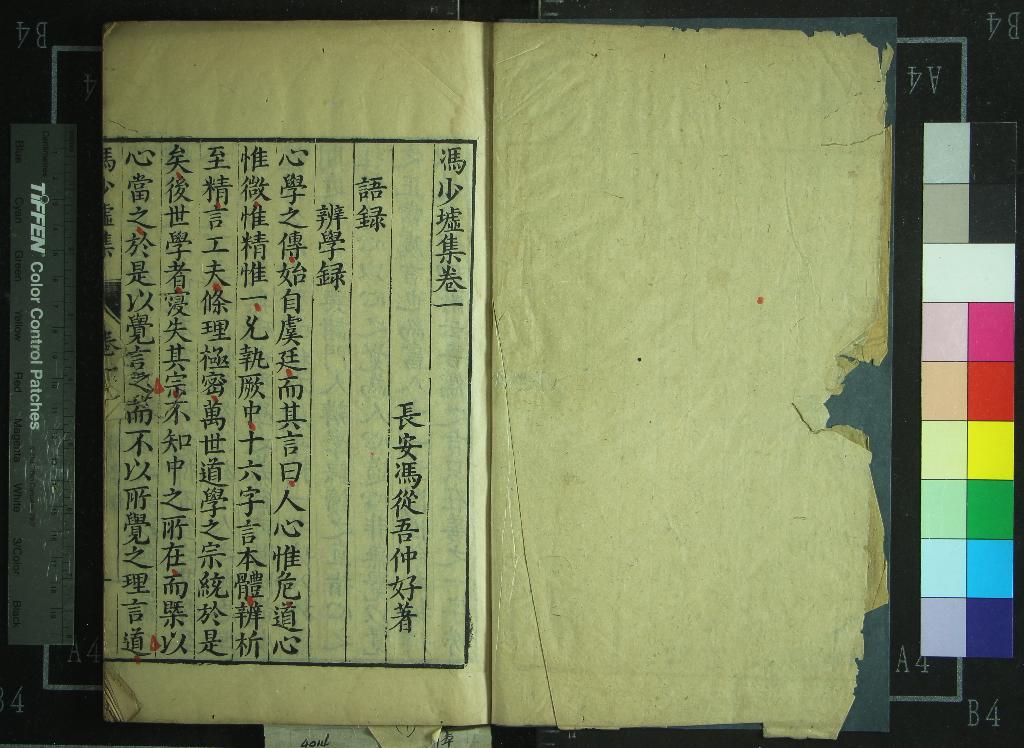 馮少墟集卷一
長安馮從吾仲好著
語録
辨學録
心學之傳始自虞廷而其言曰人心惟危道心
惟微惟精惟一允執厥中十六字言本體辨析
至精言工夫條理極密萬世道學之宗統於是
矣後世學者寖失其宗不知中之所在而槩以
心當之於是以覺言之而不以所覺之理言道
馮少墟集
卷一
TIFFEN Color Control Patches
Blue
Cyan
Green
Yellow
Red
Magenta
White
3/Color
Black
Centimetres
B4
A4
B4
A4
A4
B4
A4
B4